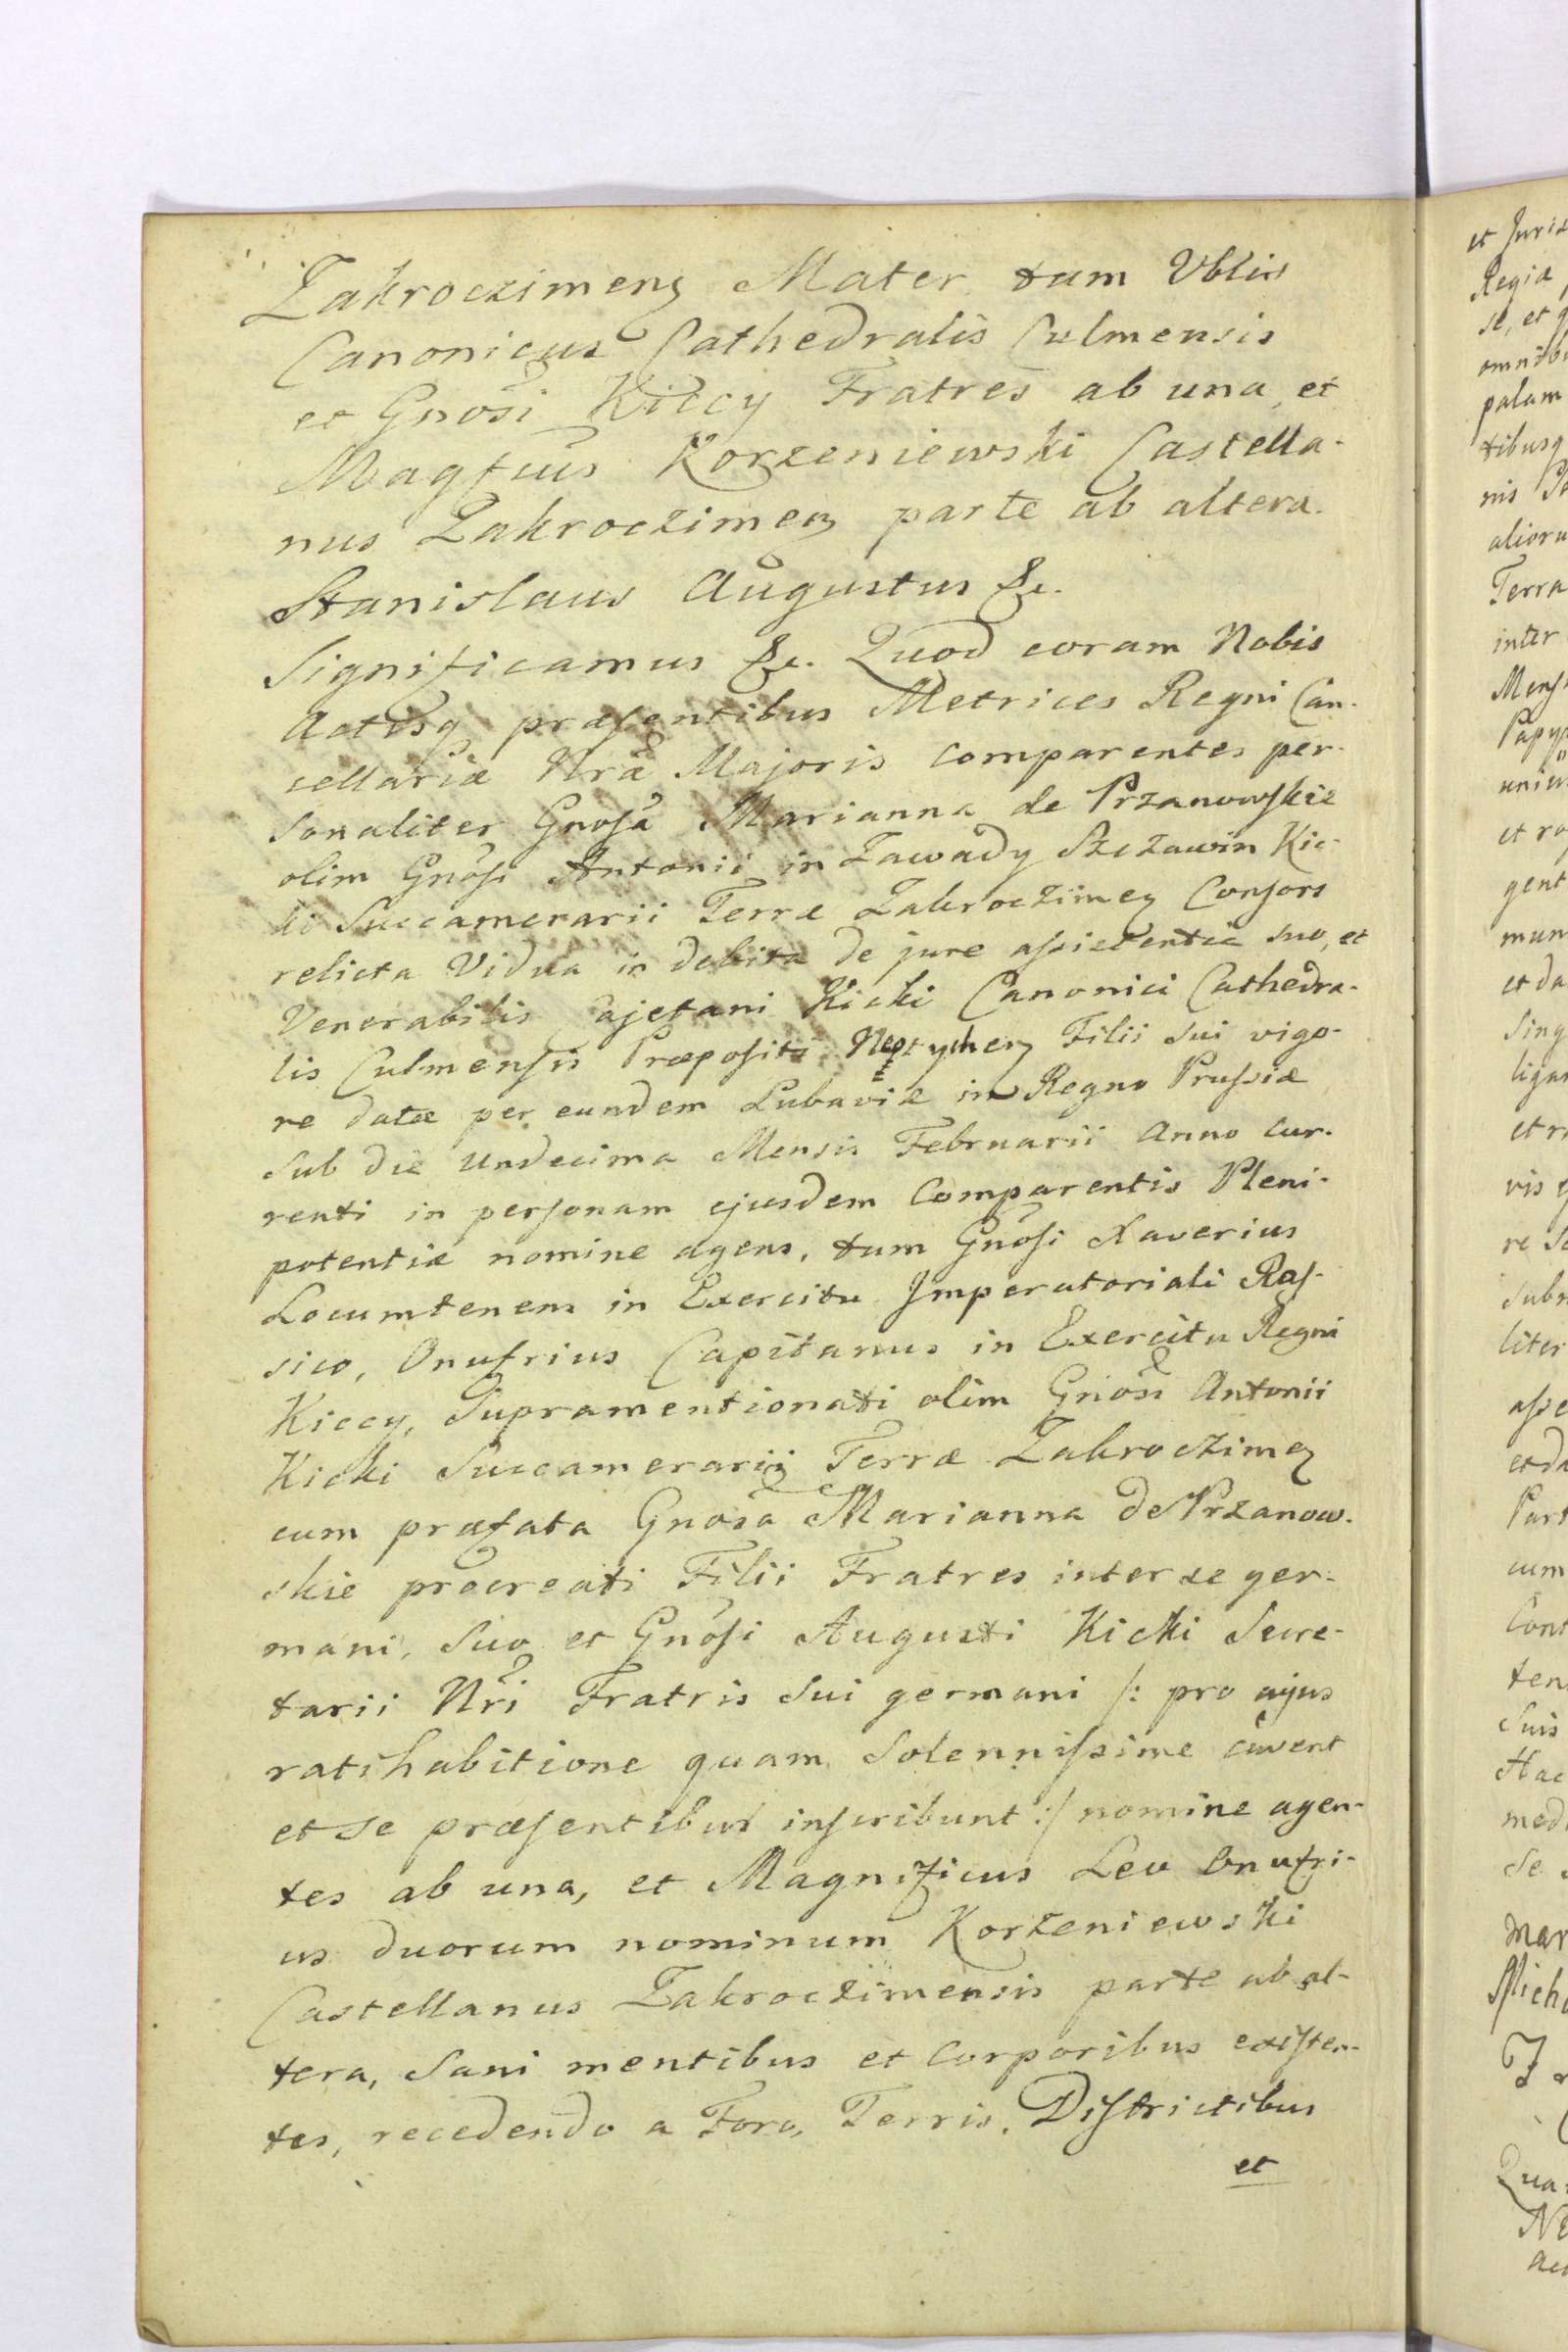 Zakroczimens Mater tum Vblis
Canonicus Cathedralis Culmensis
et Gnosi Kiccy Fratres ab una, et
Magfius Korzeniewski Castella-
nus Zakroczimen parte ab altera.
Stanislaus Augustus &c.
Significamus &c. Quod coram Nobis
Actisq præsentibus Metrices Regni Can-
cellariæ Nræ Majoris comparentes per-
sonaliter Gnosa Marianna de Przanowskie
olim Gnosi Antonii in Zawady Szczawin Kic-
ki Succamerarii Terræ Zakroczimen Consors
relicta Vidua in debita de jure assistentia suo, et
Venerabilis Cajetani Kicki Canonici Cathedra-
lis Culmensis Præpositi Filii sui vigo-
re datæ per eundem Lubaviæ in Regno Prussiæ
sub die undecima Mensis Februarii Anno cur-
renti in personam ejusdem Comparentis Pleni-
potentiæ nomine agens, tum Gnosi Xaverius
Locumtenens in Exercitu Imperatoriali Ras-
sico, Onufrius Capitanus in Exercitu Regni
Kiccy, Supramentionati olim Gnosi Antonii
Kicki Succamerarii Terræ Zakroczimen
cum præfata Gnosa Marianna de Przanow-
skie procreati Filii Fratres inter se ger-
mani, suo et Gnosi Augusti Kicki Secre-
tarii Nri Fratris sui germani /: pro cujus
ratihabitione quam Solennissime cavent
et se præsentibus inscribunt :/ nomine agen-
tes ab una, et Magnificus Leo Onufri-
us duorum nominum Korzeniewski
Castellanus Zakroczimensis parte ab al-
tera, Sani mentibus et Corporibus existen-
tes, recedendo a Foro, Terris, Districtibus
et
et Juris
Regia
se, et q
omnib
palam
tibusq
nis
alioru
Terra
inter
Mens
unive
et ro
gent
mun
et da
Sing
ligan
et r
vis
re
subm
liter
asse
et da
Part
cum
Cont
ten
Suis
Hac
medi
se
Mar
Mich
Qua